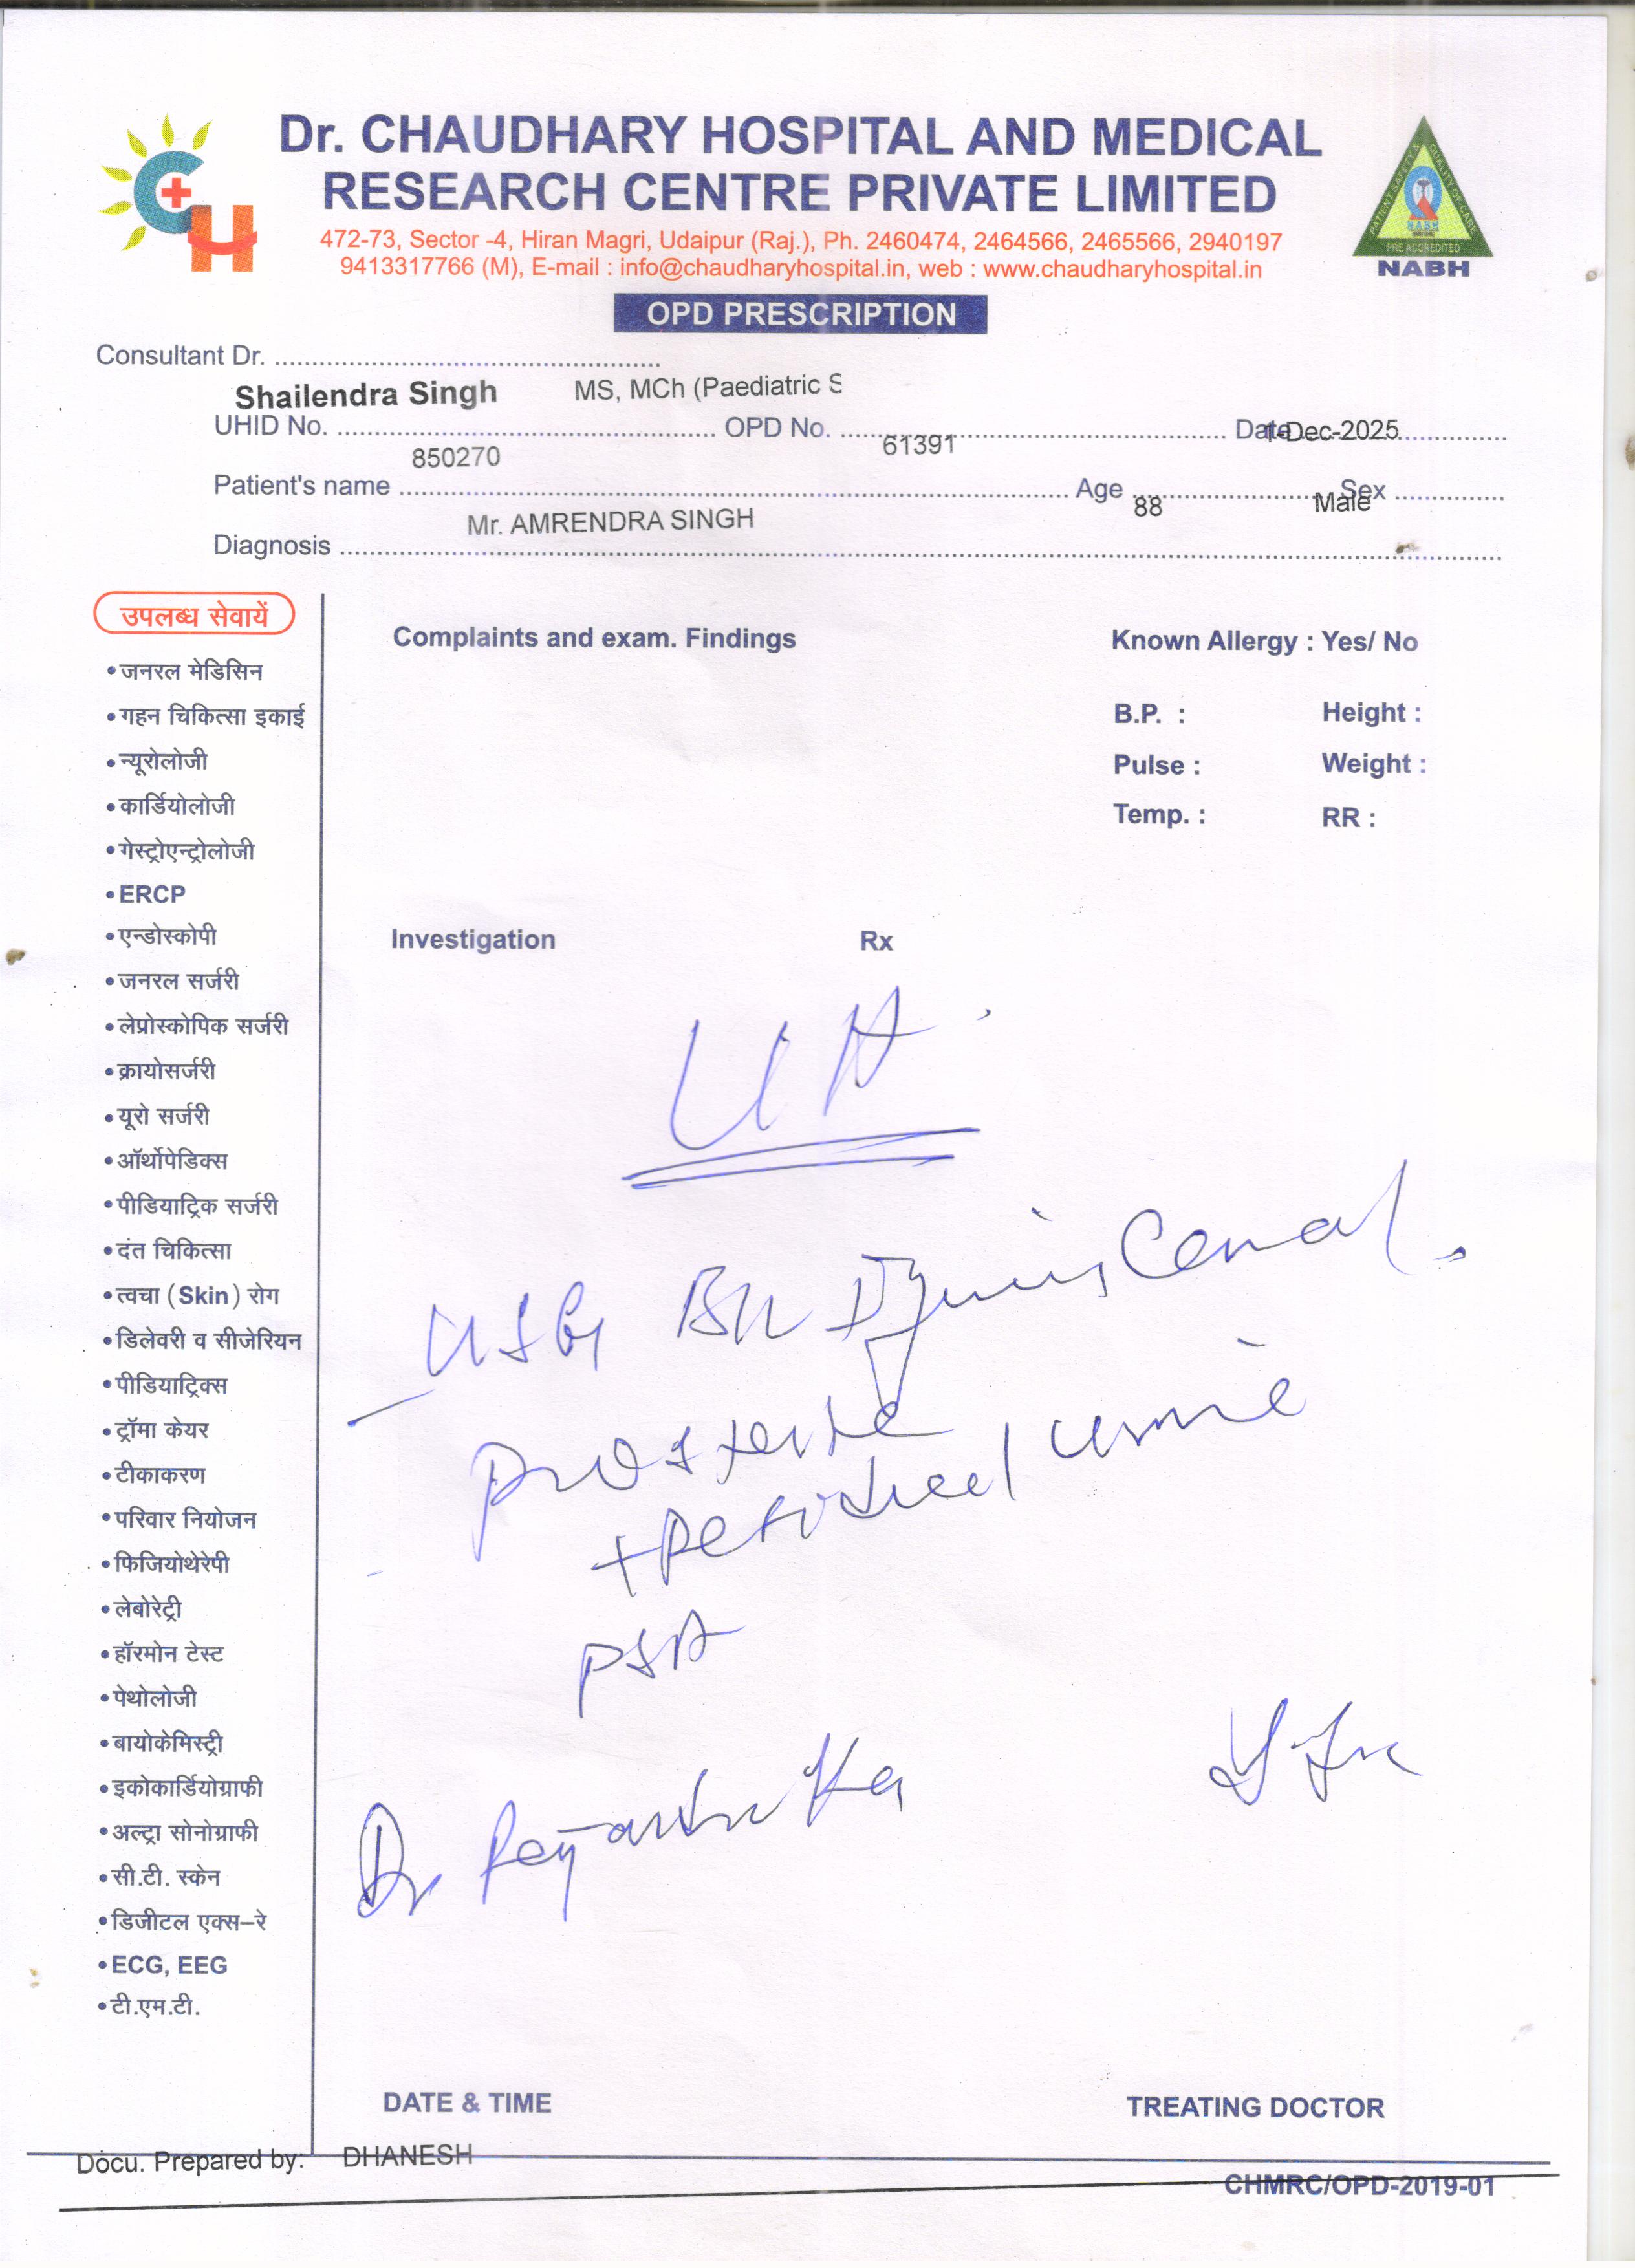 Dr. CHAUDHARY HOSPITAL AND MEDICAL
RESEARCH CENTRE PRIVATE LIMITED
472-73, Sector -4, Hiran Magri, Udaipur (Raj.), Ph. 2460474, 2464566, 2465566, 2940197
9413317766 (M), E-mail : info@chaudharyhospital.in, web : www.chaudharyhospital.in
PATIENT SAFETY & QUALITY OF CARE
NABH
PRE ACCREDITED
NABH
OPD PRESCRIPTION
Consultant Dr.
Shailendra Singh MS, MCh (Paediatric S
UHID No. OPD No. Date
850270 61391 1-Dec-2025
Patient's name Age Sex
Mr. AMRENDRA SINGH 88 Male
Diagnosis
उपलब्ध सेवायें
• जनरल मेडिसिन
• गहन चिकित्सा इकाई
• न्यूरोलोजी
• कार्डियोलोजी
• गेस्ट्रोएन्ट्रोलोजी
• ERCP
• एन्डोस्कोपी
• जनरल सर्जरी
• लेप्रोस्कोपिक सर्जरी
• क्रायोसर्जरी
• यूरो सर्जरी
• ऑर्थोपेडिक्स
• पीडियाट्रिक सर्जरी
• दंत चिकित्सा
• त्वचा (Skin) रोग
• डिलेवरी व सीजेरियन
• पीडियाट्रिक्स
• ट्रॉमा केयर
• टीकाकरण
• परिवार नियोजन
• फिजियोथेरेपी
• लेबोरेट्री
• हॉरमोन टेस्ट
• पेथोलोजी
• बायोकेमिस्ट्री
• इकोकार्डियोग्राफी
• अल्ट्रा सोनोग्राफी
• सी.टी. स्केन
• डिजीटल एक्स-रे
• ECG, EEG
• टी.एम.टी.
Complaints and exam. Findings
Known Allergy : Yes/ No
B.P. : Height :
Pulse : Weight :
Temp. : RR :
Investigation Rx
USG
Prostate
urine
PSA
Dr
DATE & TIME TREATING DOCTOR
Docu. Prepared by: DHANESH
CHMRC/OPD-2019-01